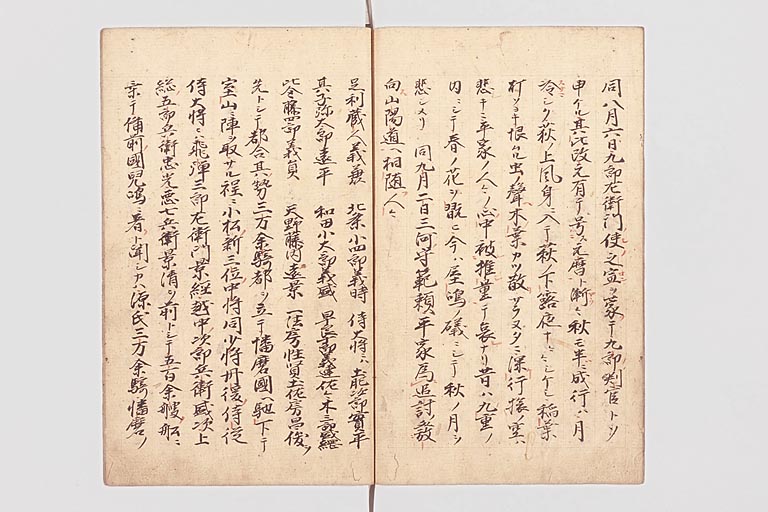 同八月六日九郎左衛門使之宣ヲ蒙テ九郎判官トソ
申ケル其比改元有テ号ス元暦ト漸々秋モ半ニ成行ハ月
冷シク荻ノ上風身ニ入テ萩ノ下露夜
打ツヽキ恨ムル虫ノ聲木葉カツ散サラヌタニ深行
悲キニ平家ノ人々ノ心中被推量テ哀ナリ昔ハ九重ノ
内ニシテ春ノ花ヲ既ニ今ハ屋嶋ノ礒ニシテ秋ノ月ヲ
悲シメリ 同九月二日三河守範頼平家為追討發
向山陽道ヘ相随人々
足利蔵人義兼 北条小四郎義時 侍大將ニ土肥次郎實平
其子弥太郎遠平 和田小太郎義盛 佐々木三郎盛綱
比企藤四郎義員 天野藤内遠景 一法房性賢土佐房昌俊ヲ
先トシテ都合其勢三万余騎都ヲ立テ幡磨國ヘ馳下テ
室山ニ陣ヲ取サル程ニ小松新三位中將同少將丹後侍従
侍大將ニ飛弾三郎左衛門景経越中次郎兵衛盛次上
総五郎兵衛忠光悪七兵衛景清ヲ前トシテ五百余艘船ニ
乗テ備前國児嶋ニ着ト聞シカハ源氏三万余騎幡磨ノ